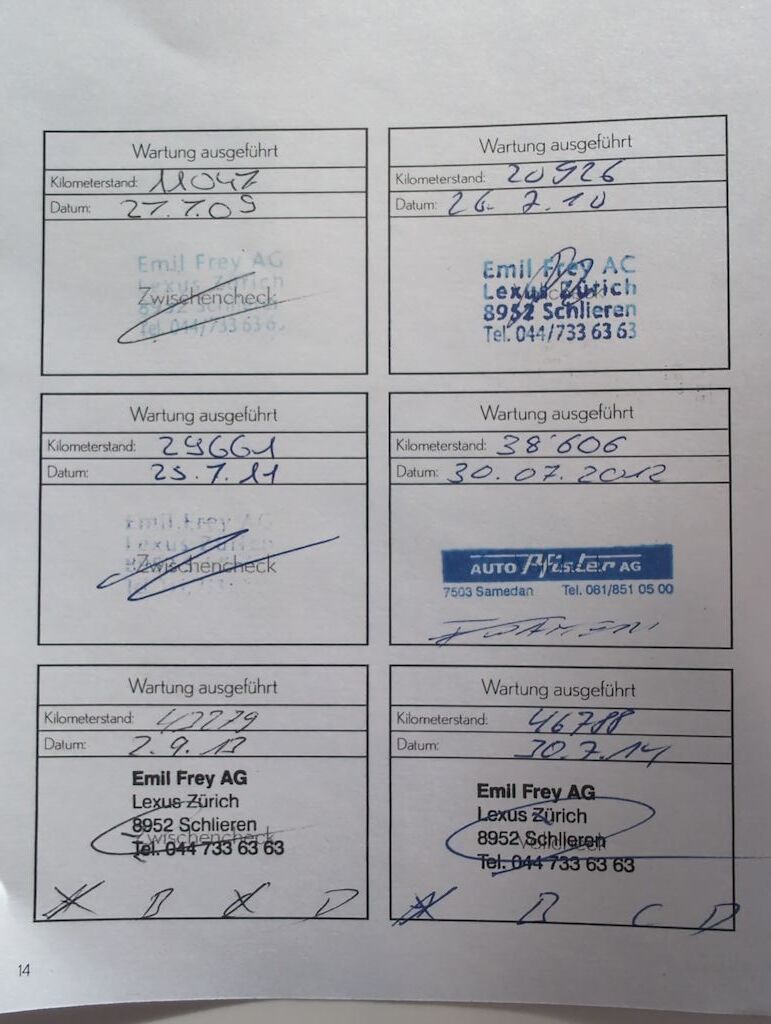 Wartung ausgeführt
Kilometerstand: 11047
Datum: 27.7.09
Emil Frey AG
Lexus Zürich
8952 Schlieren
Zwischencheck
Tel. 044/733 63 6
Wartung ausgeführt
Kilometerstand: 20926
Datum: 26. 7.10
Emil Frey AG
Lexus Zürich
8952 Schlieren
Tel. 044/733 63 63
Wartung ausgeführt
Kilometerstand: 29661
Datum: 25.7.11
Emil Frey AG
Lexus Zürich
Zwischencheck
Wartung ausgeführt
Kilometerstand: 38'606
Datum: 30.07.2012
AUTO Pfister AG
7503 Samedan Tel. 081/851 05 00
Wartung ausgeführt
Kilometerstand: 43279
Datum: 2.9.13
Emil Frey AG
Lexus Zürich
8952 Schlieren
Zwischencheck
Tel. 044 733 63 63
A B C D
Wartung ausgeführt
Kilometerstand: 46788
Datum: 30.7.14
Emil Frey AG
Lexus Zürich
8952 Schlieren
Vollcheck
Tel. 044 733 63 63
A B C D
14